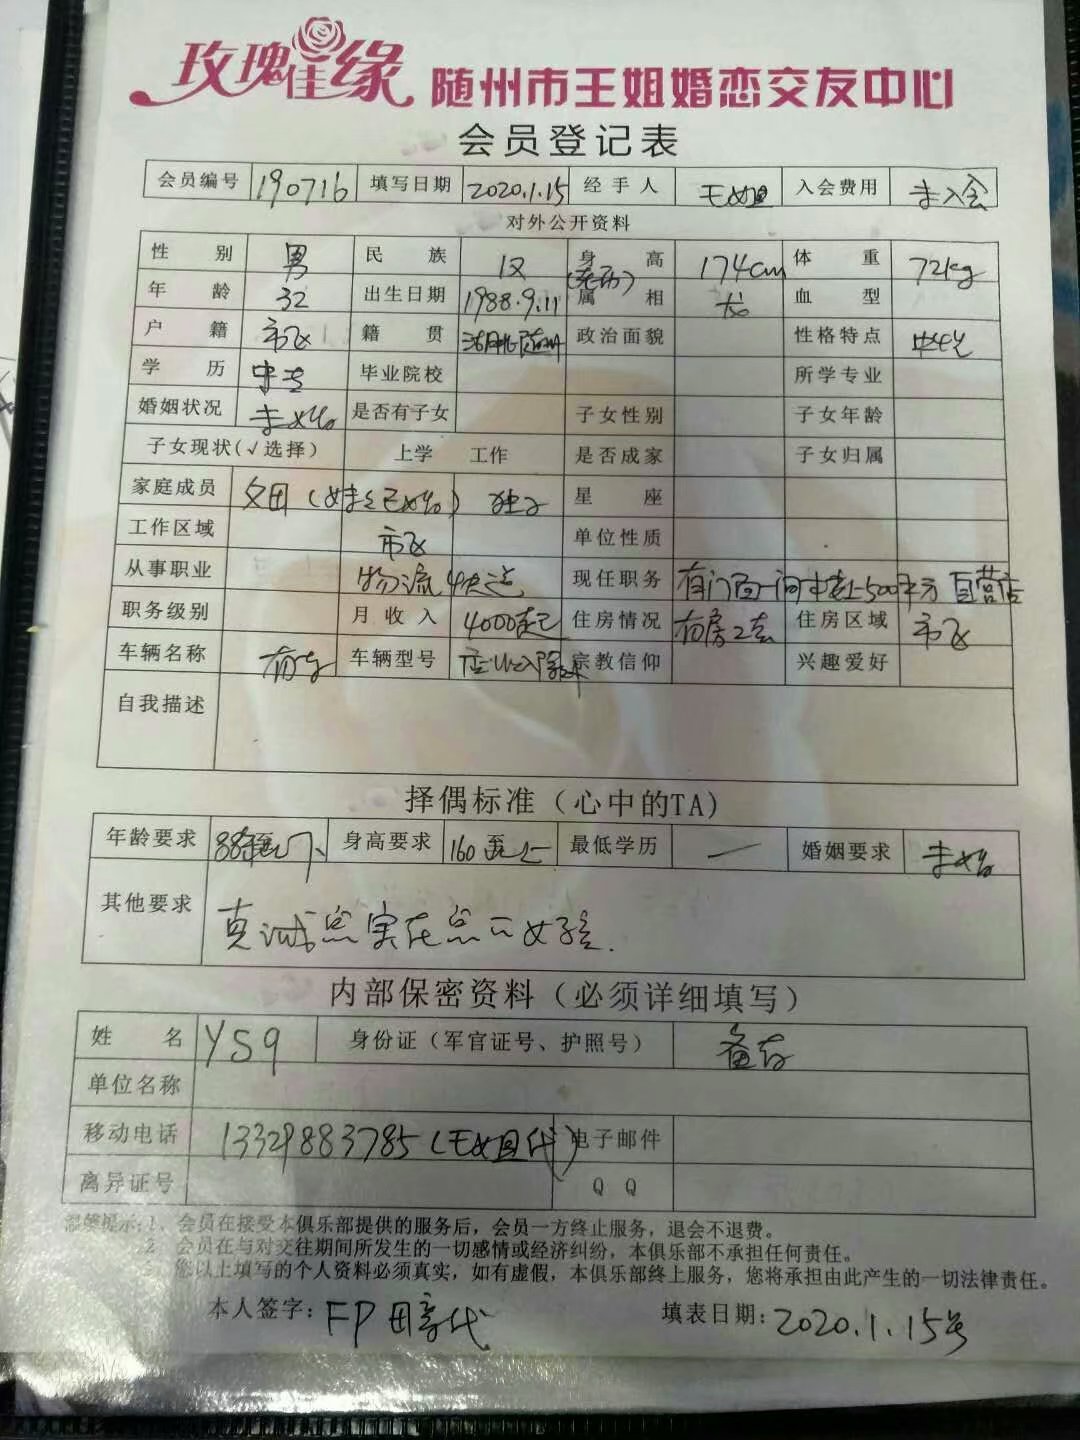 玫瑰佳缘 随州市王姐婚恋交友中心
会员登记表
会员编号 190716 填写日期 2020.1.15 经手人 王姐 入会费用 未入会
对外公开资料
性别 男 民族 汉 身高 174cm 体重 72kg
年龄 32 出生日期 1988.9.11 (农历) 属相 龙 血型
户籍 市区 籍贯 湖北随州 政治面貌 性格特点
学历 中专 毕业院校 所学专业
婚姻状况 未婚 是否有子女 子女性别 子女年龄
子女现状(√选择) 上学 工作 是否成家 子女归属
家庭成员 独子 星座
工作区域 市区 单位性质
从事职业 物流 快递 现任职务 有门面一间 500平方 自营店
职务级别 月收入 4000起 住房情况 有房2套 住房区域 市区
车辆名称 有车 车辆型号 宗教信仰 兴趣爱好
自我描述
择偶标准(心中的TA)
年龄要求 身高要求 160至上 最低学历 — 婚姻要求 未婚
其他要求 真诚点实在点的女孩.
内部保密资料(必须详细填写)
姓名 YS9 身份证(军官证号、护照号) 备存
单位名称
移动电话 13329883785 (王姐代) 电子邮件
离异证号 QQ
1、会员在接受本俱乐部提供的服务后，会员一方终止服务，退会不退费。
2、会员在与对交往期间所发生的一切感情或经济纠纷，本俱乐部不承担任何责任。
您以上填写的个人资料必须真实，如有虚假，本俱乐部终上服务，您将承担由此产生的一切法律责任。
本人签字: 填表日期: 2020.1.15号